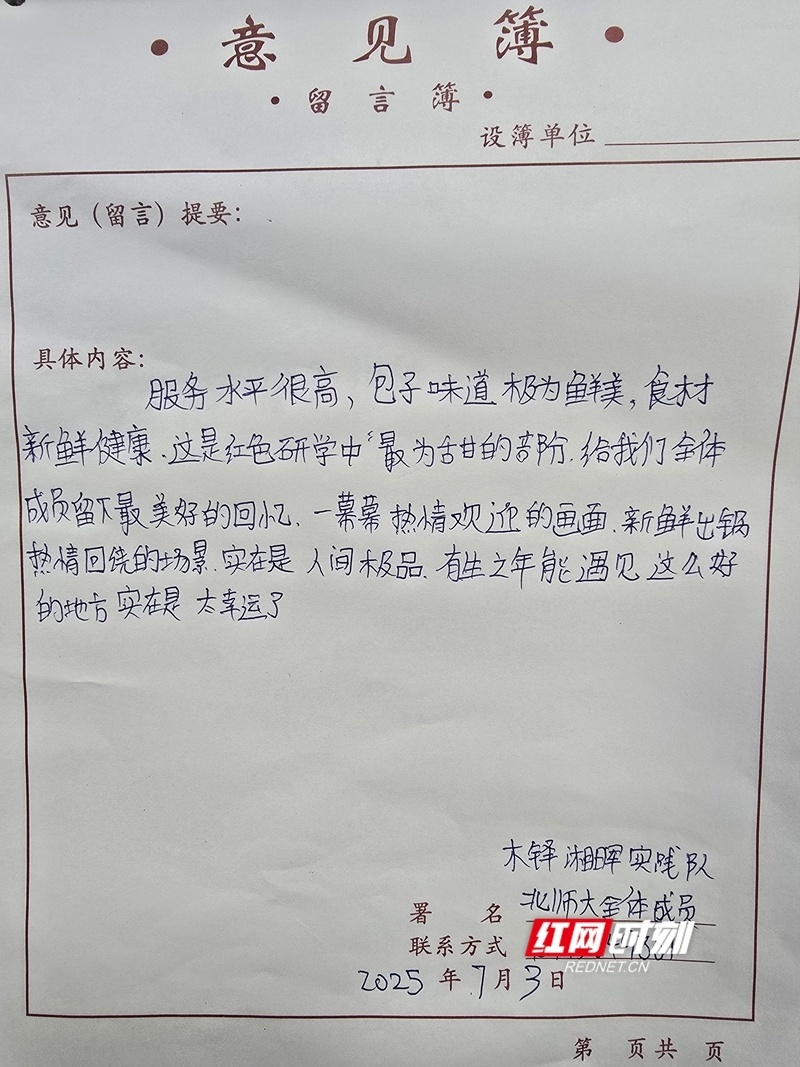 • 意见簿 •
• 留言簿 •
设簿单位
意见（留言）提要：
具体内容：
服务水平很高、包子味道极为鲜美，食材
新鲜健康．这是红色研学中最为甜的部分．给我们全体
成员留下最美好的回忆．一幕幕热情欢迎的画面．新鲜出锅
热情回绕的场景．实在是人间极品．有生之年能遇见这么好
的地方实在是太幸运了
木铎湘晖实践队
署名 北师大全体成员
联系方式
红网时刻
REDNET.CN
2025年7月3日
第 页共 页